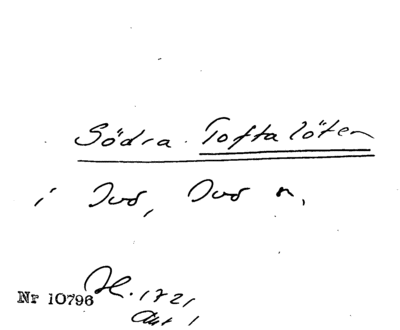 Södra Toftalöten
i Ivö, Ivö n.
Nr 10796 H. 1721
Akt 1